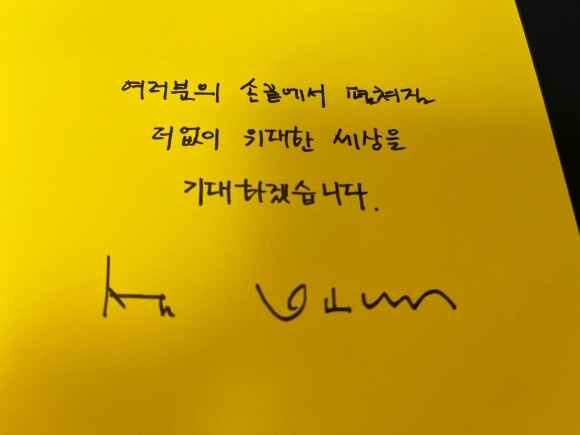 여러분의 손끝에서 펼쳐질
더없이 위대한 세상을
기대하겠습니다.